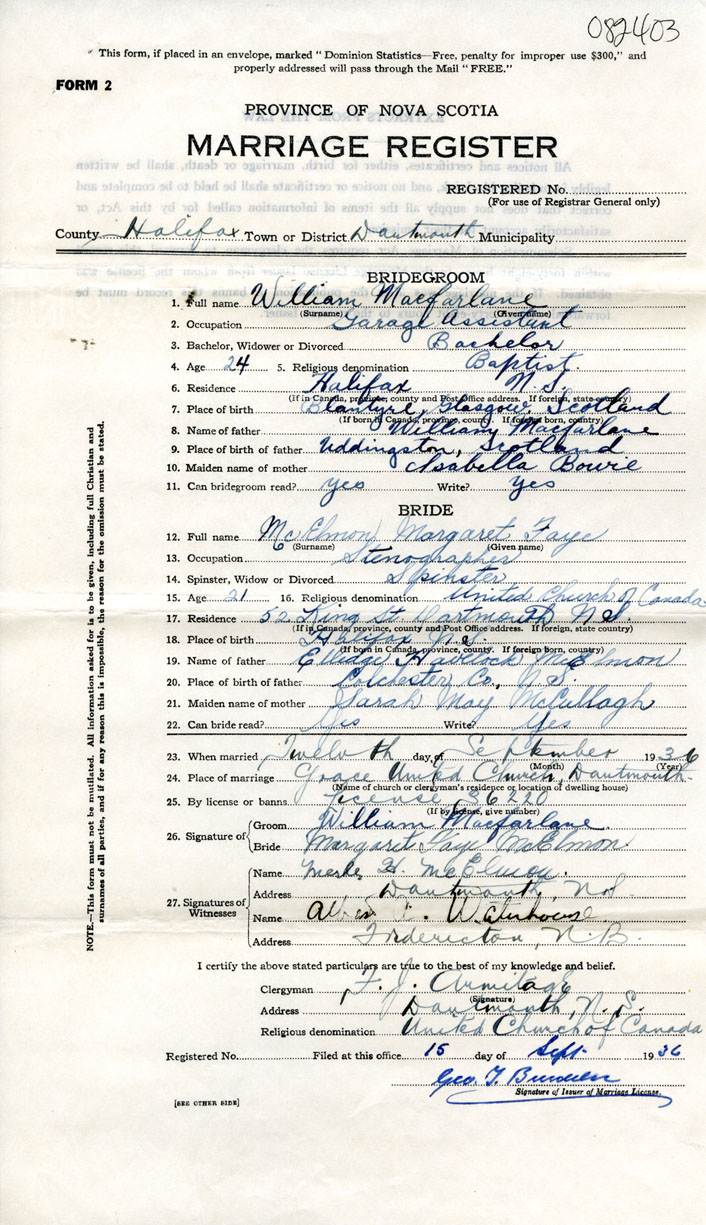 082403
This form, if placed in an envelope, marked " Dominion Statistics—Free, penalty for improper use $300," and
properly addressed will pass through the Mail " FREE."
FORM 2
PROVINCE OF NOVA SCOTIA
MARRIAGE REGISTER
REGISTERED No.
(For use of Registrar General only)
County Halifax Town or District Dartmouth Municipality
BRIDEGROOM
1. Full name William Macfarlane
(Surname) (Given name)
2. Occupation Garage Assistant
3. Bachelor, Widower or Divorced Bachelor
4. Age 24 5. Religious denomination Baptist.
6. Residence Halifax N.S.
(If in Canada, province, county and Post Office address. If foreign, state country)
7. Place of birth Blantyre, Glasgow, Scotland
(If born in Canada, province, county. If foreign born, country)
8. Name of father William Macfarlane
9. Place of birth of father Uddingston, Scotland
10. Maiden name of mother Isabella Bowie
11. Can bridegroom read? yes Write? yes
BRIDE
12. Full name McElmon, Margaret Faye
(Surname) (Given name)
13. Occupation Stenographer
14. Spinster, Widow or Divorced Spinster
15. Age 21 16. Religious denomination United Church of Canada
17. Residence 52 King St Dartmouth N.S.
(If in Canada, province, county and Post Office address. If foreign, state country)
18. Place of birth Halifax N.S.
(If born in Canada, province, county. If foreign born, country)
19. Name of father Havelock McElmon
20. Place of birth of father Colchester Co., N.S.
21. Maiden name of mother Sarah May McCullagh
22. Can bride read? Yes Write? Yes
23. When married, Twelvth day of September 1936
(Month) (Year)
24. Place of marriage Grace United Church, Dartmouth-
(Name of church or clergyman's residence or location of dwelling house)
25. By license or banns License 36220
(If by license, give number)
26. Signature of Groom William Macfarlane
Bride Margaret Faye McElmon
27. Signatures of Witnesses
Name H.
Address Dartmouth, N.S.
Name Waterhouse
Address Fredericton, N.B.
I certify the above stated particulars are true to the best of my knowledge and belief.
Clergyman F. J. Armitage
(Signature)
Address Dartmouth, N.S.
Religious denomination United Church of Canada
Registered No. Filed at this office 15 day of Sept. 1936
Geo. T.
Signature of Issuer of Marriage License.
[SEE OTHER SIDE]
NOTE.—This form must not be mutilated. All information asked for is to be given, including full Christian and
surnames of all parties, and if for any reason this is impossible, the reason for the omission must be stated.